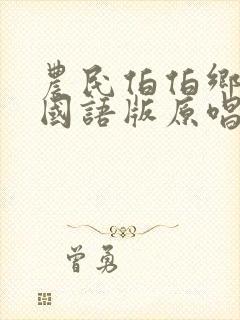 農民伯伯鄉
國語版原唱
曾勇